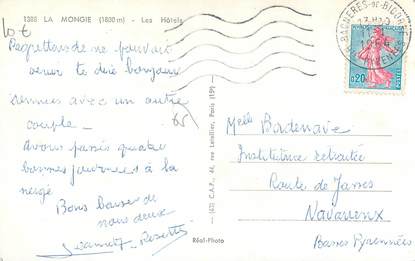 1388 LA MONGIE (1800 m) - Les Hôtels
10 €
Regrettons de ne pouvoir
venir te dire bonjour
sommes avec un autre
couple -
avons passé quatre
bonnes journées à la
neige
Bons baisers de
nous deux
Jeannette - Rosette
65
(43) C.A.P., 44, rue Letellier, Paris (15e)
Réal-Photo
BAGNERES-DE-BIGORRE
0,20
POSTES
Melle Bordenave
Institutrice retraitée
Route de Jasses
Navarrenx
Basses Pyrénées